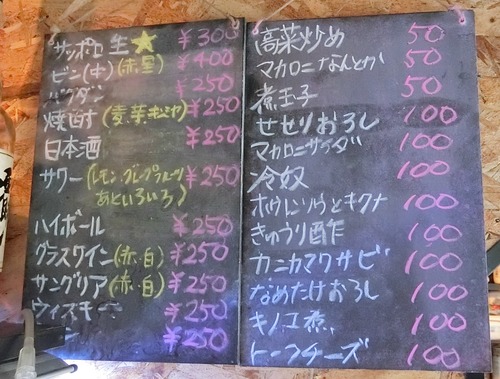 サッポロ生★ ¥300
ビン(中)(赤星) ¥400
バクダン ¥250
焼酎 (麦、芋、キンミヤ) ¥250
日本酒 ¥250
サワー (レモン、グレープフルーツ ¥250
あといろいろ)
ハイボール ¥250
グラスワイン(赤・白) ¥250
サングリア(赤・白) ¥250
ウィスキー ¥250
¥250
高菜炒め 50
マカロニなんとか 50
煮玉子 50
せせりおろし 100
マカロニサラダ 100
冷奴 100
ホウレンソウとキクナ 100
きゅうり酢 100
カニカマワサビ 100
なめたけおろし 100
キノコ煮 100
トーフチーズ 100